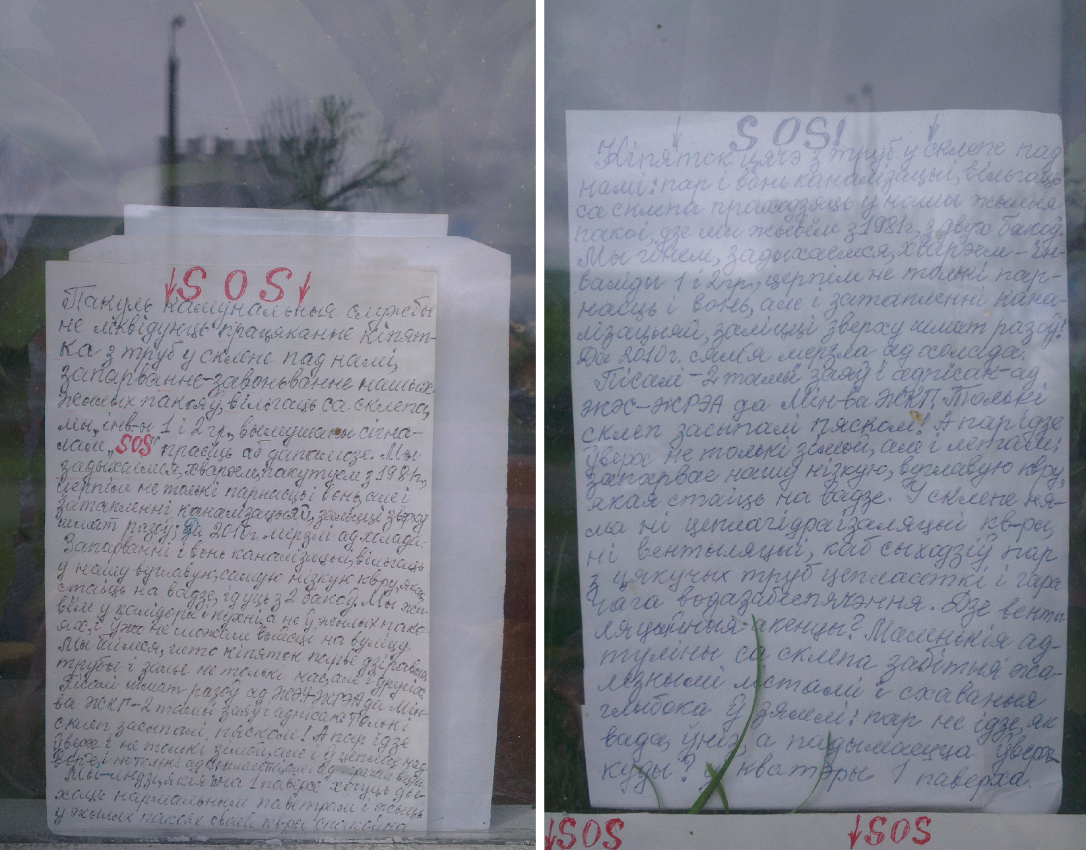 ↓SOS↓
Пакуль камунальныя службы
не ліквідуюць працяканне кіпят-
ка з труб у склепе пад намі,
запарванне-завоньванне нашых
жылых пакояў, вільгаць са склепа,
мы, інв-ы 1 і 2 гр., вымушаны сігна-
лам „SOS" прасіць аб дапамозе. Мы
задыхаемся, хварэем, пакутуем з 1981г.,
церпім не толькі парнасць і вонь, але і
затапленні каналізацыяй, заліцці зверху
шмат разоў; Да 2010г. мерзлі ад холада.
Запарванні і вонь каналізацыі, вільгаць
у нашу вуглавую, самую нізкую кв-ру, якая
стаіць на вадзе, ідуць з 2 бакоў. Мы жы-
вём у калідоры і кухні, а не ў жылых пако-
ях, і ўжо не можам выйсці на вуліцу.
Мы баімся, што кіпяток дзіравыя
трубы і залье не толькі нас, але і другіх.
Пісалі шмат разоў ад ЖЭУ-ЖРЭА да Мін-
ва ЖКП-2 тамы заяў і адпісак. Толькі
склеп засыпалі пяском! А пар ідзе
ўверх і не толькі зімой, але і ў цёплы час
Мы-людзі, якія на 1 паверсе хочуць ды-
хаць нармальным паветрам і жыць
у жылых пакоях сваёй кв-ры спакойна
↓ SOS! ↓
Кіпяток цячэ з труб у склепе пад
намі: пар і вонь каналізацыі, вільгаць
са склепа праходзяць у нашы жылыя
пакоі, дзе мы жывём з 1981г. з двух бакоў.
Мы гінем, задыхаемся, хварэем-ін-
валіды 1 і 2гр., церпім не толькі пар-
насць і вонь, але і затапленні кана-
лізацыяй, заліцці зверху шмат разоў!
Да 2010г. сям'я мерзла ад холада.
Пісалі-2 тамы заяў і адпісак-ад
ЖЭС-ЖРЭА да Мін-ва ЖКП. Толькі
склеп засыпалі пяском! А пар ідзе
ўверх не толькі зімой, але і летам:
запарвае нашу нізкую, вуглавую кв-ру,
якая стаіць на вадзе. У склепе ня-
ма ні цеплагідраізаляцыі кв-ры,
ні вентыляцыі, каб сыходзіў пар
з цякучых труб цепласеткі і гара-
чага водазабеспячэння. Дзе венты-
ляцыйныя акенцы? Маленькія ад-
туліны са склепа забітыя жа-
лезнымі лістамі і схаваныя
глыбока ў зямлі: пар не ідзе, як
вада, ўніз, а падымаецца ўверх-
куды? у кватэры 1 паверха.
↓SOS ↓SOS